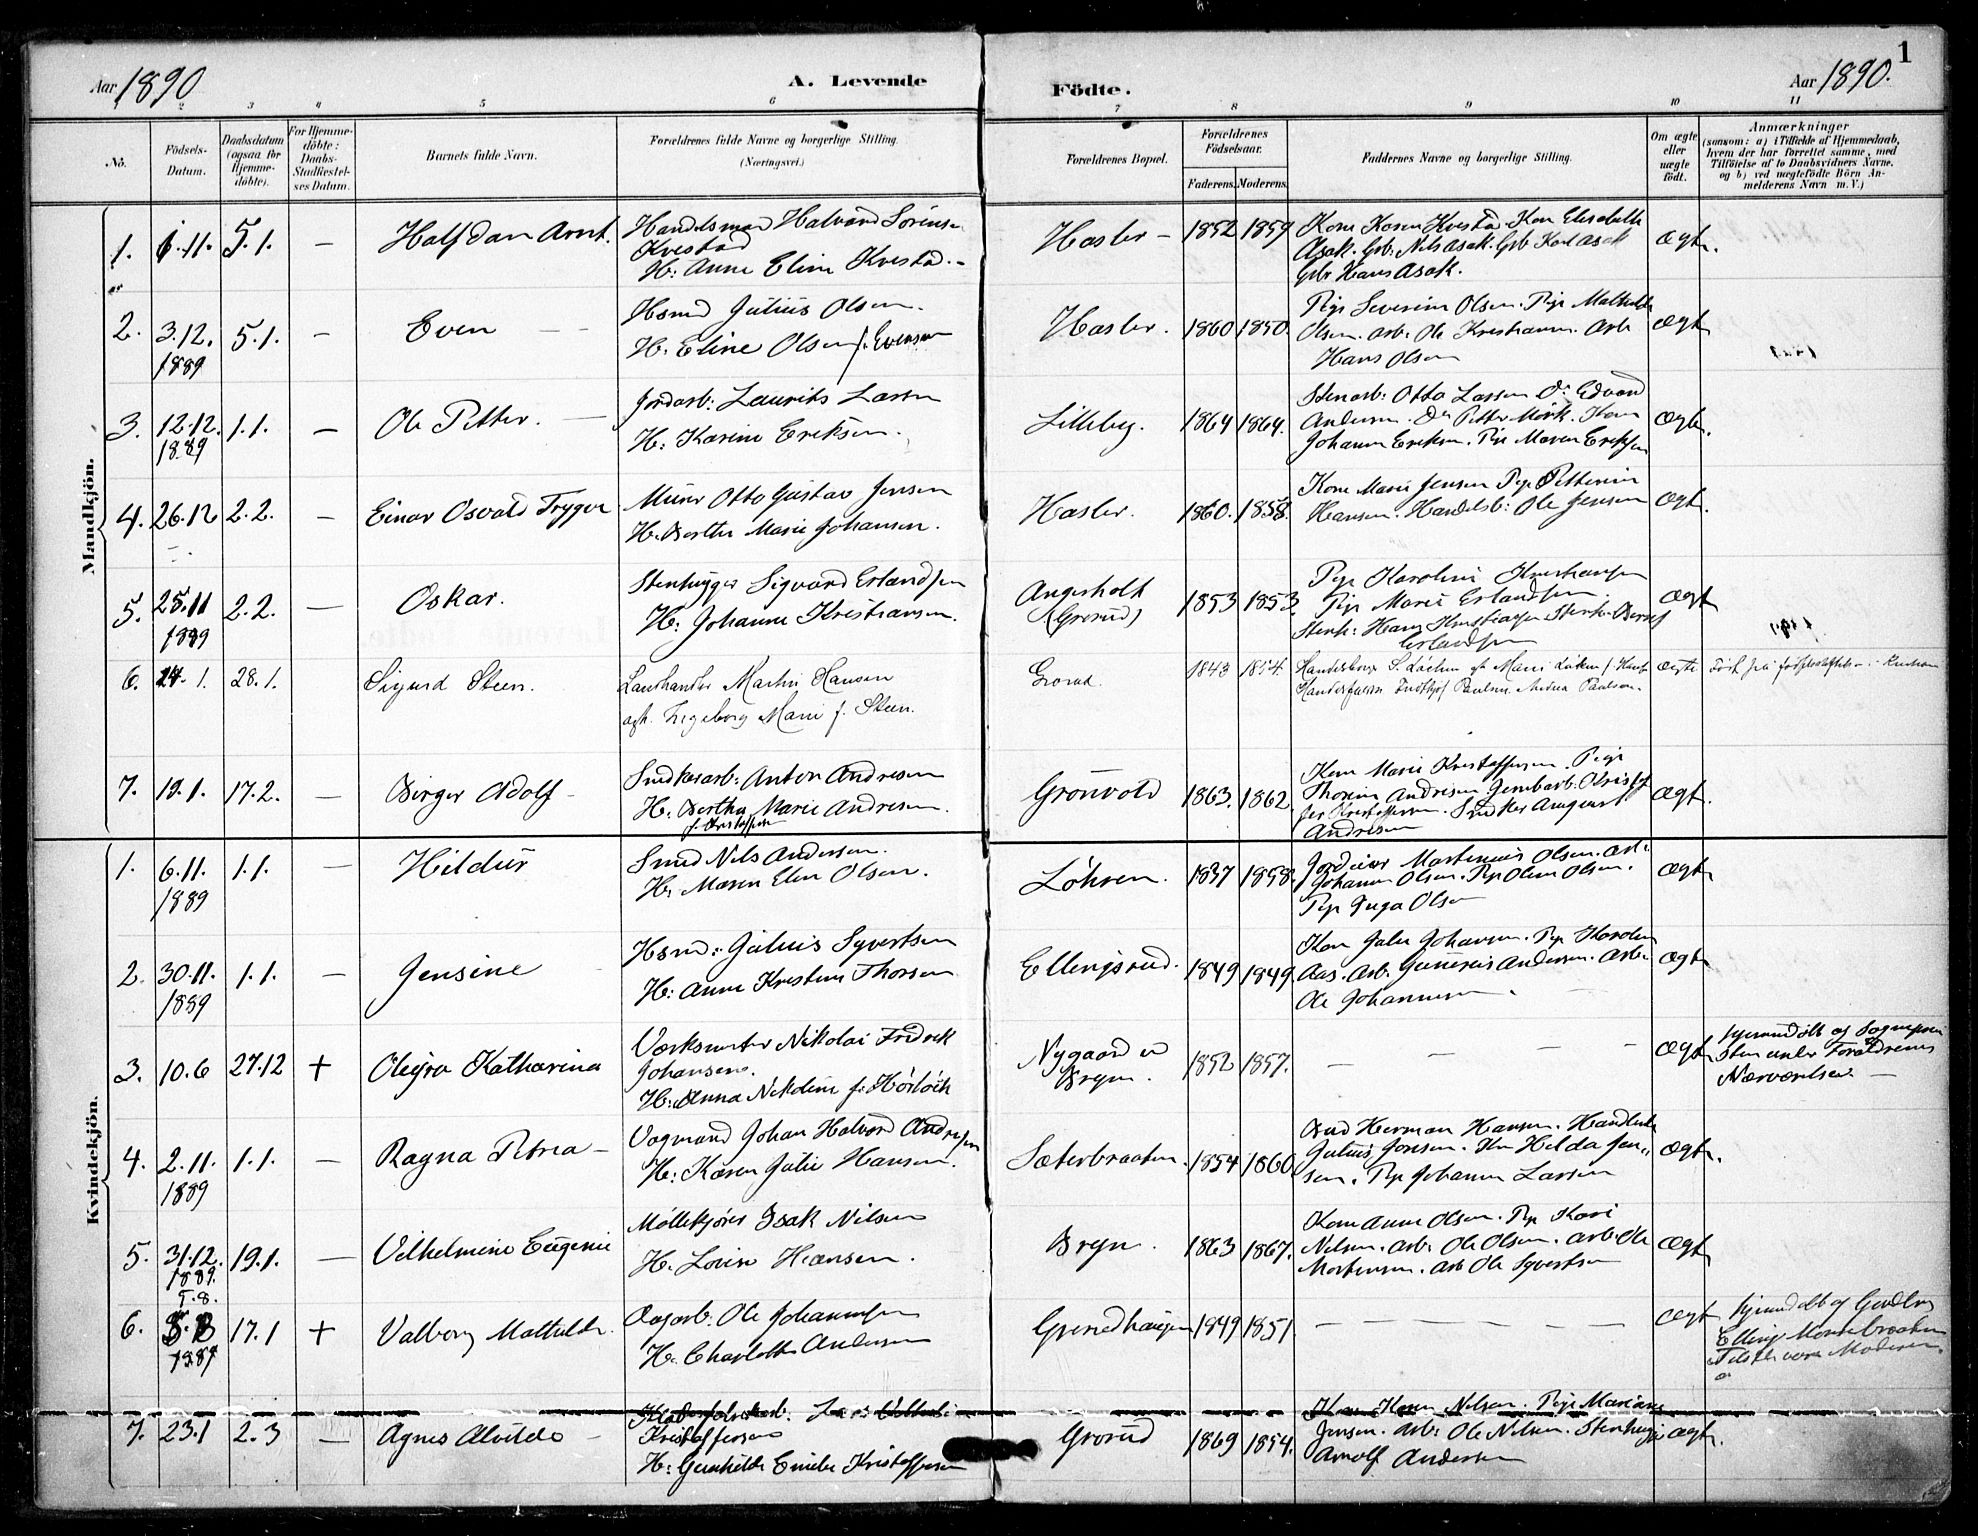 1
Aar 1890
A. Levende
Födte.
Aar 1890.
1 2 3 4 5 6 7 8 9 10 11
No.
Födsels-
Datum.
Daabsdatum
(ogsaa for
Hjemme-
döbte).
For Hjemme-
döbte:
Daabs-
Stadfæstel-
ses Datum.
Barnets fulde Navn.
Forældrenes fulde Navne og borgerlige Stilling.
(Næringsvei.)
Forældrenes Bopæl.
Forældrenes
Födselsaar.
Faderens. Moderens.
Faddernes Navne og borgerlige Stilling.
Om ægte
eller
uægte
födt.
Anmærkninger
(saasom: a) i Tilfælde af Hjemmedaab,
hvem der har forrettet samme, med
Tilföielse af to Daabsvidners Navne,
og b) ved uægtefödte Börn An-
melderens Navn m. V.)
Mandkjön.
1. 6.11. 5.1. — Halfdan Arnt. Handelsmand Halvard Sörensen
Kvestad
H: Anne Eline Kvestad.
Hasler — 1852 1859 Kone Karen Kvestad Kone Elisabeth
Asak. Grb: Nils Asak. Grb Karl Asak
Grb Hans Asak.
Ægte.
2. 3.12. 5.1. — Even — Hsmd Julius Olsen.
1889
H: Eline Olsen f. Evensen
Hasler. 1860 1850. Pige Severine Olsen. Pige Mathilde
Olsen. Arb: Ole Kristiansen. Arb
Hans Olsen
Ægte
3. 12.12. 1.1. — Ole Petter. — Jordarb: Laurits Larsen
1889
H: Karine Eriksen.
Lilleby. 1864 1864. Stenarb: Otto Larsen Do Edvard
Andersen. Do Petter Mörk. Kone
Johanne Eriksen. Pige Maren Eriksen
Ægte.
4. 26.12 2.2. — Einar Osvald Trygve Murer Otto Gustav Jensen
H. Berthe Marie Johansen.
Hasler. 1860. 1858. Kone Marie Jensen Pige Petterine
Hansen. Handelsb: Ole Jensen
Ægte.
5. 25.11 2.2. — Oskar. Stenhugger Sigvard Erlandsen
1889
H: Johanne Kristiansen.
Angersholt
(Grorud) 1853 1853. Pige Karoline Kristiansen
Pige Marie Erlandsen.
Stenh: Hans Kristiansen Stenh:
Erlandsen
Ægte
6. 24.1. 28.1. Sigurd Steen. Landhandler Martin Hansen
Ingeborg Marie f. Steen.
Grorud. 1843 1854.
Fridtjof Paulsen. Andrea Paulsen.
ægte
7. 19.1. 17.2. — Birger Adolf — Snedkerarb: Anton Andresen
H. Bertha Marie Andresen.
f. Kristoffersen
Grönvold 1863. 1862 Kone Marie Kristoffersen. Pige
Thorine Andresen Jernbarb: Kristof
fer Kristoffersen. Snedker August
Andresen
Ægte.
Kvindekjön.
1. 6.11. 1.1. — Hildur Smed Nils Andersen.
1889
H: Maren Elen Olsen.
Löhren. 1837 1858.
Johanne Olsen. Pige Oline Olsen.
Pige Inga Olsen
Ægte
2. 30.11. 1.1. — Jensine Hsmd: Julius Syvertsen
1889
H: Anne Kristine Thorsen
Ellingsrud. 1849 1849. Kone Julie Johansen. Pige Karoline
Aas. Arb. Gunerius Andersen. Arb:
Ole Johannesen
Ægte
3. 10.6 27.12 + Olefra Katharina Værksmester Nikolai Fredrik
Johansen.
H: Anna Nikoline f.
Nygaard v
Bryn. 1852 1857. — — — — Ægte Hjemmedöbt af Sognepræsten
under Forældrenes
Nærværelse. —
4. 2.11. 1.1. — Ragna Petrea — Vognmand Johan Halvard Andresen
1889
H: Karen Julie Hansen.
Sæterbraaten. 1854 1860 Herman Hansen.
Julius Jensen. Kone Hilda Jen-
sen. Pige Johanne Larsen
Ægte.
5. 31.12. 19.1. — Vilhelmine Eugenie Möllekjörer Isak Nilsen
1889.
H. Lovise Hansen.
Bryn. 1863 1867. Kone Anne Olsen. Pige Kari
Nilsen. Arb: Ole Olsen. Arb: Ole
Mortensen. Arb Ole Syvertsen
Ægte
5.8.
6. 17.1 + Valborg Mathilde Dagarb: Ole Johannesen
1889
H. Charlotte Andersen
1849 1851. — — — — — — Ægte Hjemmedöbt af
Elling
Tilstede var Moderen.
7. 23.1 2.3 — Agnes Alvilde —
Kristoffersen
H: Gunhilde Emilie Kristoffersen
Grorud 1869 1854. Kone Karen Nilsen. Pige Mariane
Jensen. Arb: Ole Nilsen. Stenhugger
Arnolf Andersen
Ægte.